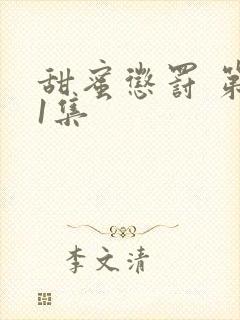 甜蜜懲罰 第
1集
李文清